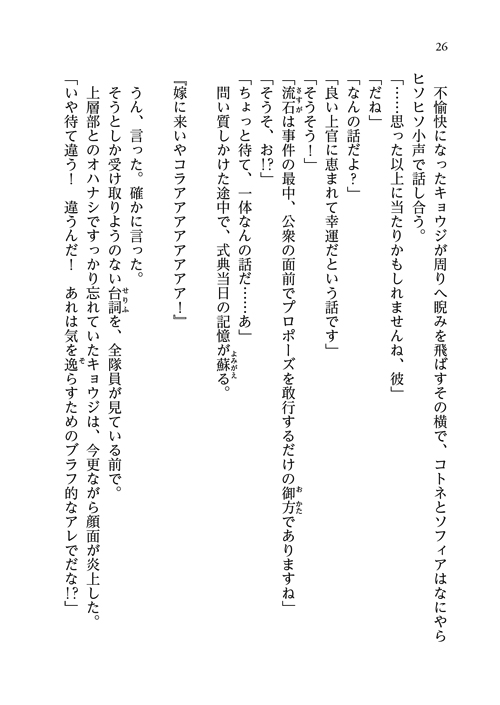 26
不愉快になったキョウジが周りへ睨みを飛ばすその横で、コトネとソフィアはなにやら
ヒソヒソ小声で話し合う。
「……思った以上に当たりかもしれませんね、彼」
「だね」
「なんの話だよ？」
「良い上官に恵まれて幸運だという話です」
「そうそう！」
「流石は事件の最中、公衆の面前でプロポーズを敢行するだけの御方でありますね」
「そうそ、お!?」
「ちょっと待て、一体なんの話だ……あ」
問い質しかけた途中で、式典当日の記憶が蘇る。
『嫁に来いやコラアアアアアアアア！』
うん、言った。確かに言った。
そうとしか受け取りようのない台詞を、全隊員が見ている前で。
上層部とのオハナシですっかり忘れていたキョウジは、今更ながら顔面が炎上した。
「いや待て違う！　違うんだ！　あれは気を逸らすためのブラフ的なアレでだな!?」